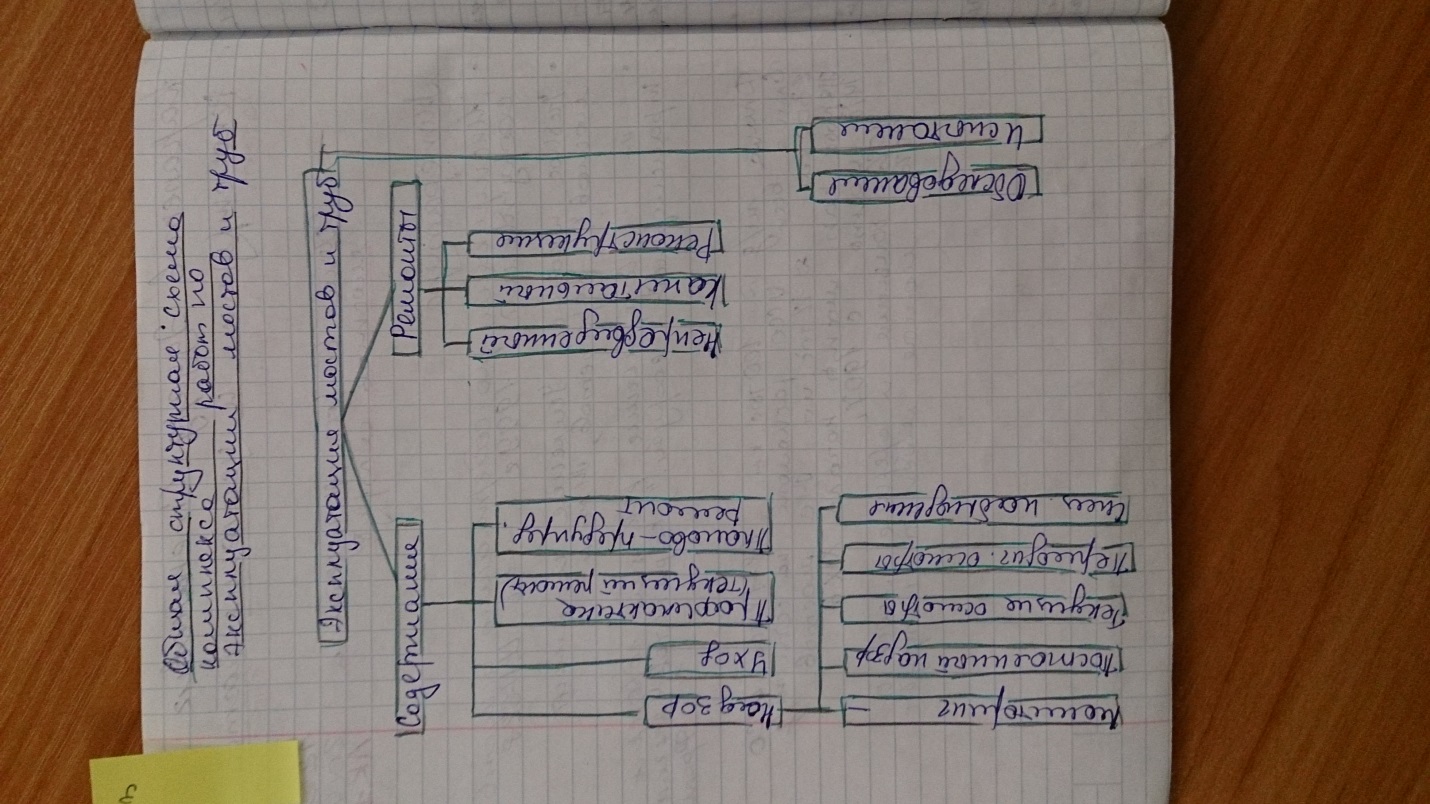 Общая структурная схема
комплекса работ по
эксплуатации мостов и труб
Эксплуатация мостов и труб
Содержание
Ремонты
Планово-предупред.
ремонт
Профилактика
(текущий ремонт)
Уход
Надзор
Спец. наблюдение
Периодич. осмотры
Текущие осмотры
Постоянный надзор
Мониторинг
Реконструкция
Капитальный
Непредвиденный
Испытание
Обследование